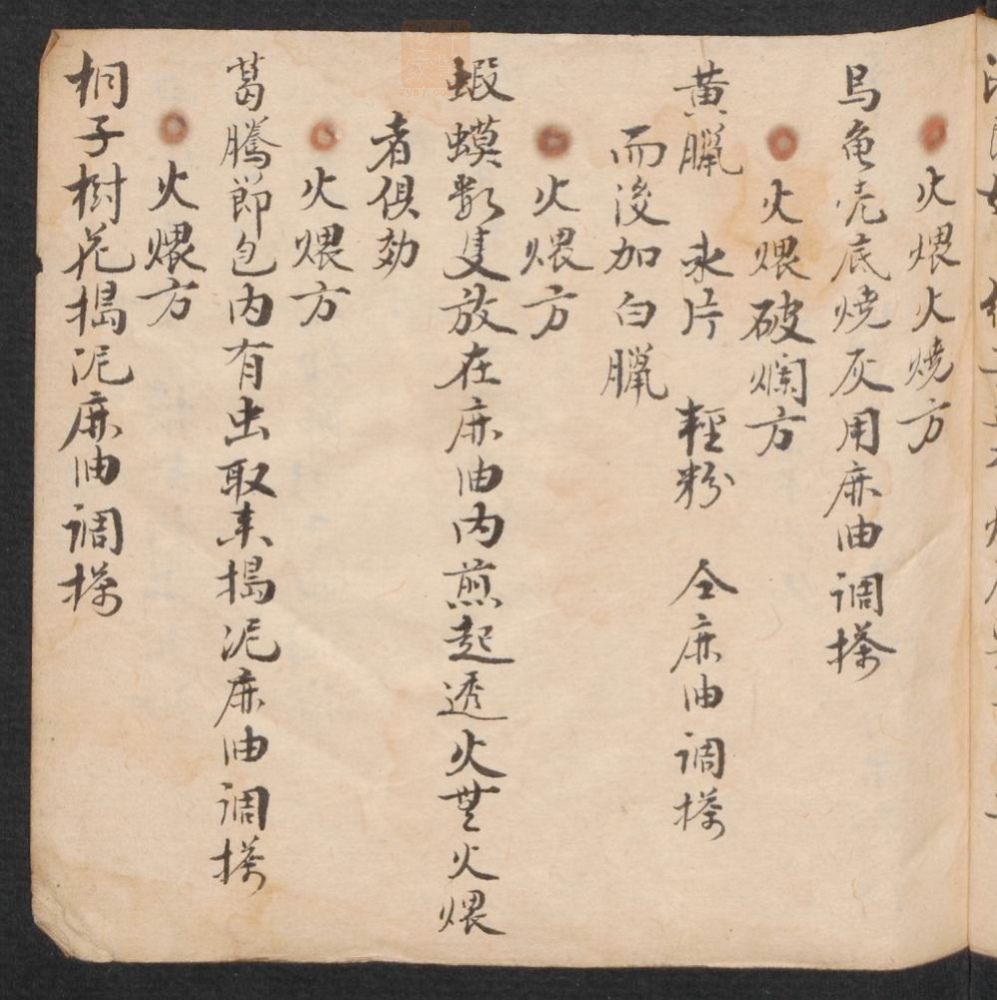 火煨火燒方
烏龟壳底燒灰用麻油调搽
火煨破爛方
黄臘 氷片 輕粉 仝麻油调搽
而後加白臘
火煨方
蝦蟆數隻放在麻油内煎起透火毒火煨
者俱効
火煨方
葛騰節包内有虫取来搗泥麻油调搽
火煨方
桐子樹花搗泥麻油调搽